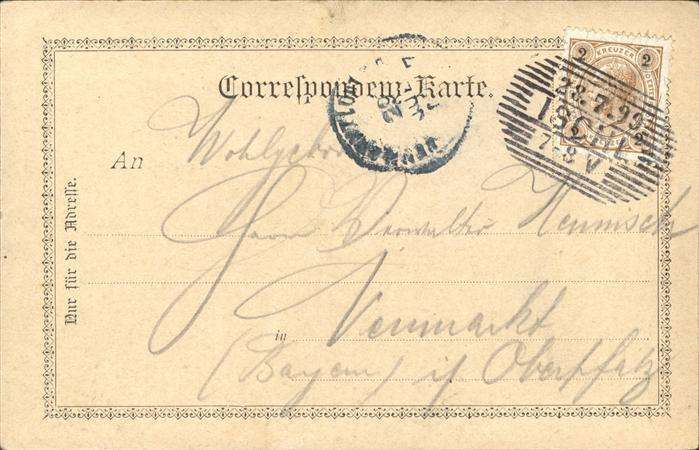 Correspondenz-Karte.
2 KREUZER 2
28.7.99
ISCHL
7-8 V
An Wohlgebor
Herrn Verwalter
in Neumarkt
(Bayern) i/ Oberpfalz
Nur für die Adresse.